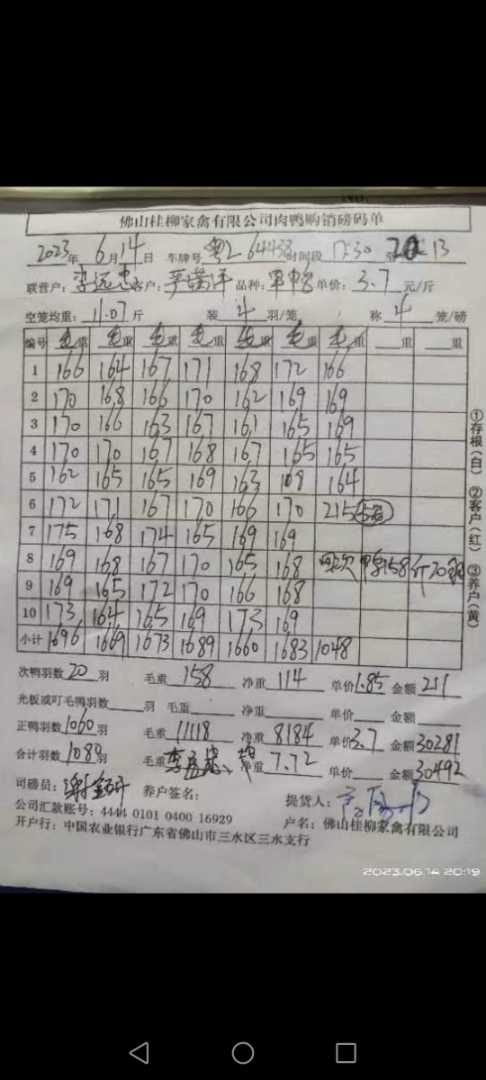 佛山桂柳家禽有限公司肉鸭购销磅码单
2023年 6月14日 车牌号 粤L 64438 时间段 17:30 13
联营户: 李远忠 客户: 品种: 单价: 3.7 元/斤
空笼均重: 11.07 斤 装 4 羽/笼 称 4 笼/磅
编号 毛重 毛重 毛重 毛重 毛重 毛重 毛重 重 重
1 166 164 167 171 168 172 166
2 170 168 166 170 162 169 169
3 170 166 163 167 161 165 169
4 170 170 167 168 167 165 165
5 162 165 165 169 163 168 164
6 172 171 167 170 166 170 215
7 175 168 174 165 169 169
8 169 168 167 170 165 168 158斤20羽
9 169 165 172 170 166 168
10 173 164 165 169 173 169
小计 1696 1669 1673 1689 1660 1683 1048
①存根(白) ②客户(红) ③养户(黄)
次鸭羽数 20 羽 毛重 158 净重 114 单价 1.85 金额 211
光板或叮毛鸭羽数 羽 毛重 净重 单价 金额
正鸭羽数 1060 羽 毛重 11118 净重 8184 单价 3.7 金额 30281
合计羽数 1080 羽 毛重 重 7.72 单价 金额 30492
司磅员: 养户签名: 提货人:
公司汇款账号: 4444 0101 0400 16929 户名: 佛山桂柳家禽有限公司
开户行: 中国农业银行广东省佛山市三水区三水支行
2023.06.14 20:19